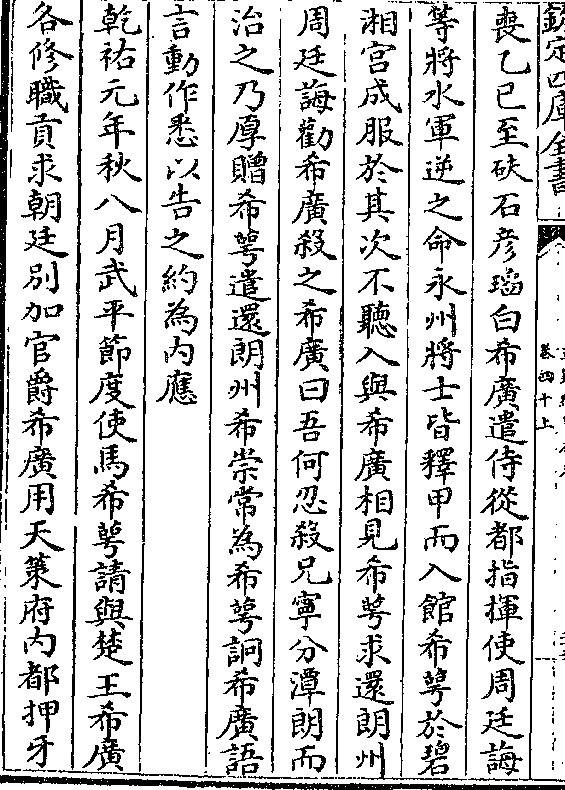 欽定四庫全書
卷四十上
喪乙已至趺石彦瑫白希廣遣侍從都指揮使周廷誨
等將水軍逆之命永州將士皆釋甲而入館希萼於碧
湘宫成服於其次不聽入與希廣相見希萼求還朗州
周廷誨勸希廣殺之希廣曰吾何忍殺兄寧分潭朗而
治之乃厚贈希萼遣還朗州希崇常為希萼詗希廣語
言動作悉以告之約為内應
乾祐元年秋八月武平節度使馬希萼請與楚王希廣
各修職貢求朝廷别加官爵希廣用天策府内都押牙